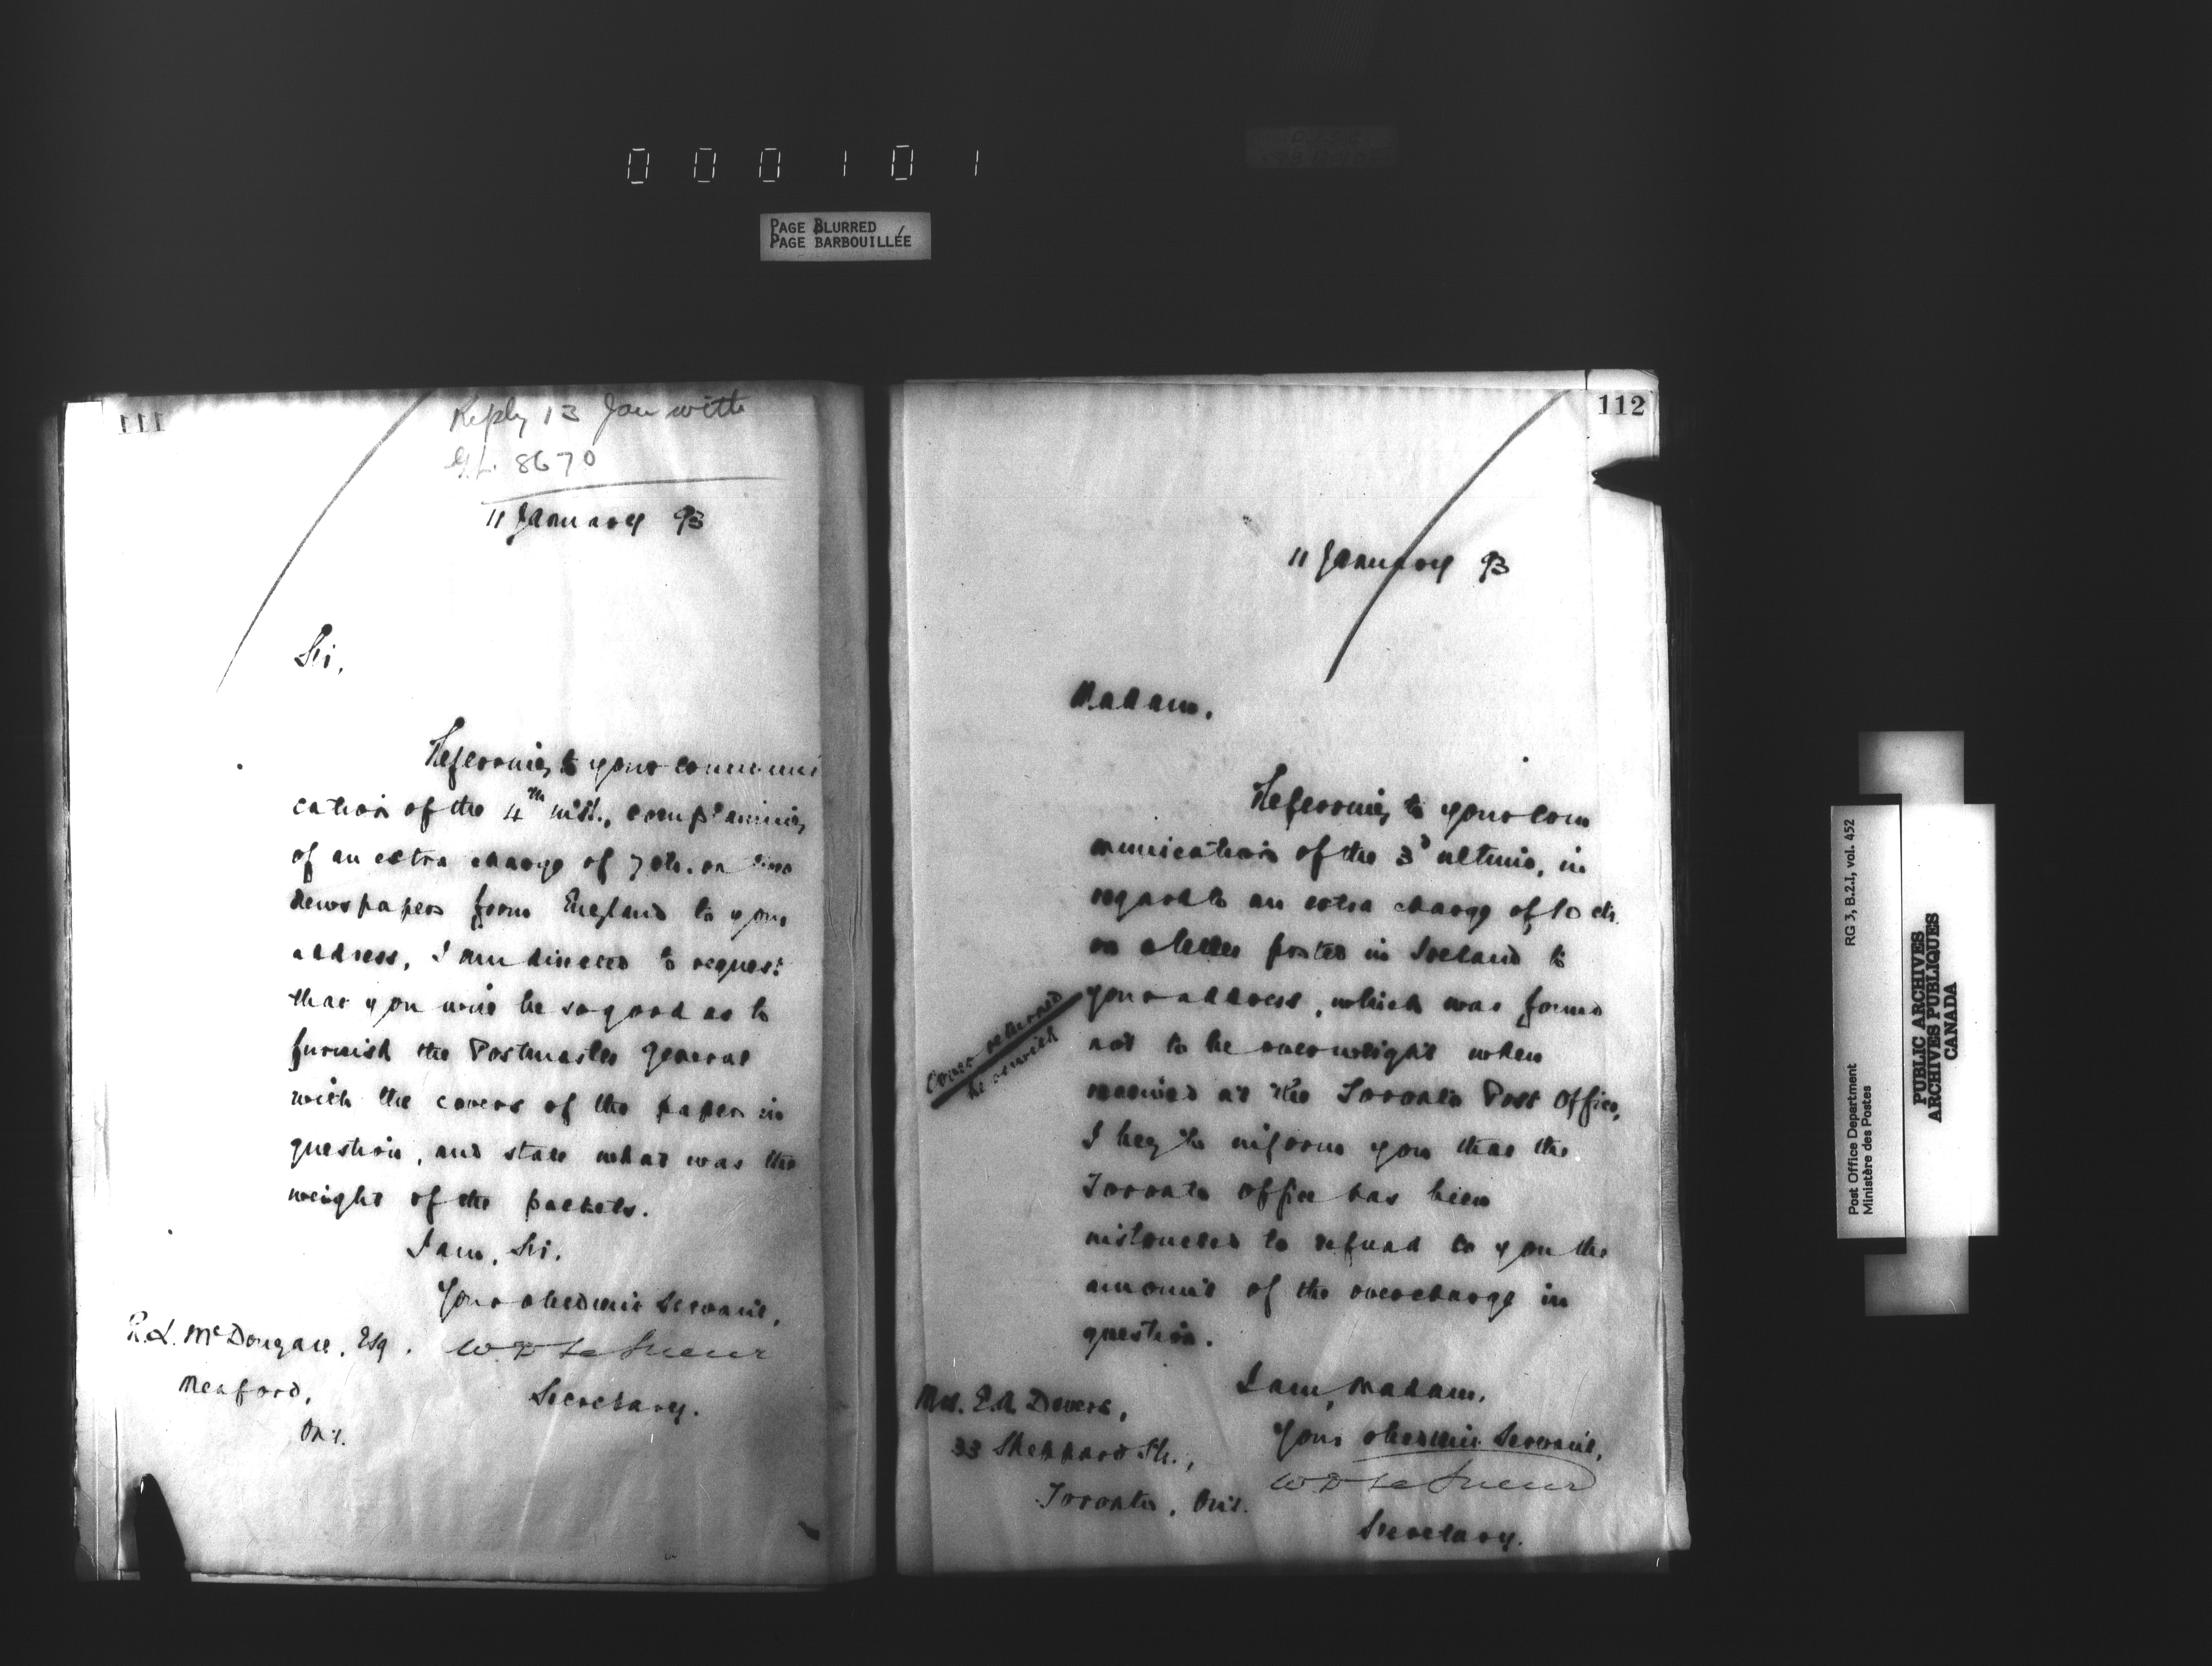 000101
PAGE BLURRED
PAGE BARBOUILLÉE
111
Reply 13 Jan with
G.L. 8670
11 January 93
Sir,
Referring to your communi
cation of the 4th inst., complaining
of an extra charge of 7 cts. on two
newspapers from England to your
address, I am directed to request
that you will be so good as to
furnish the Postmaster General
with the covers of the papers in
question, and state what was the
weight of the packets.
I am, Sir,
Your obedient Servant,
W D LeSueur
Secretary.
R. L. McDougall, Esq.
Meaford,
Ont.
112
11 January 93
Madam,
Referring to your com
munication of the 3d ultimo, in
regard to an extra charge of 10 cts.
on a letter posted in Ireland to
your address, which was found
not to be overweight when
received at the Toronto Post Office,
I beg to inform you that the
Toronto office has been
instructed to refund to you the
amount of the overcharge in
question.
Cover returned
herewith
I am, Madam,
Your obedient Servant,
W D LeSueur
Secretary.
Mrs. E.A. Devers,
33 Sheppard St.,
Toronto, Ont.
Post Office Department
Ministère des Postes
RG 3, B.2.1, vol. 452
PUBLIC ARCHIVES
ARCHIVES PUBLIQUES
CANADA